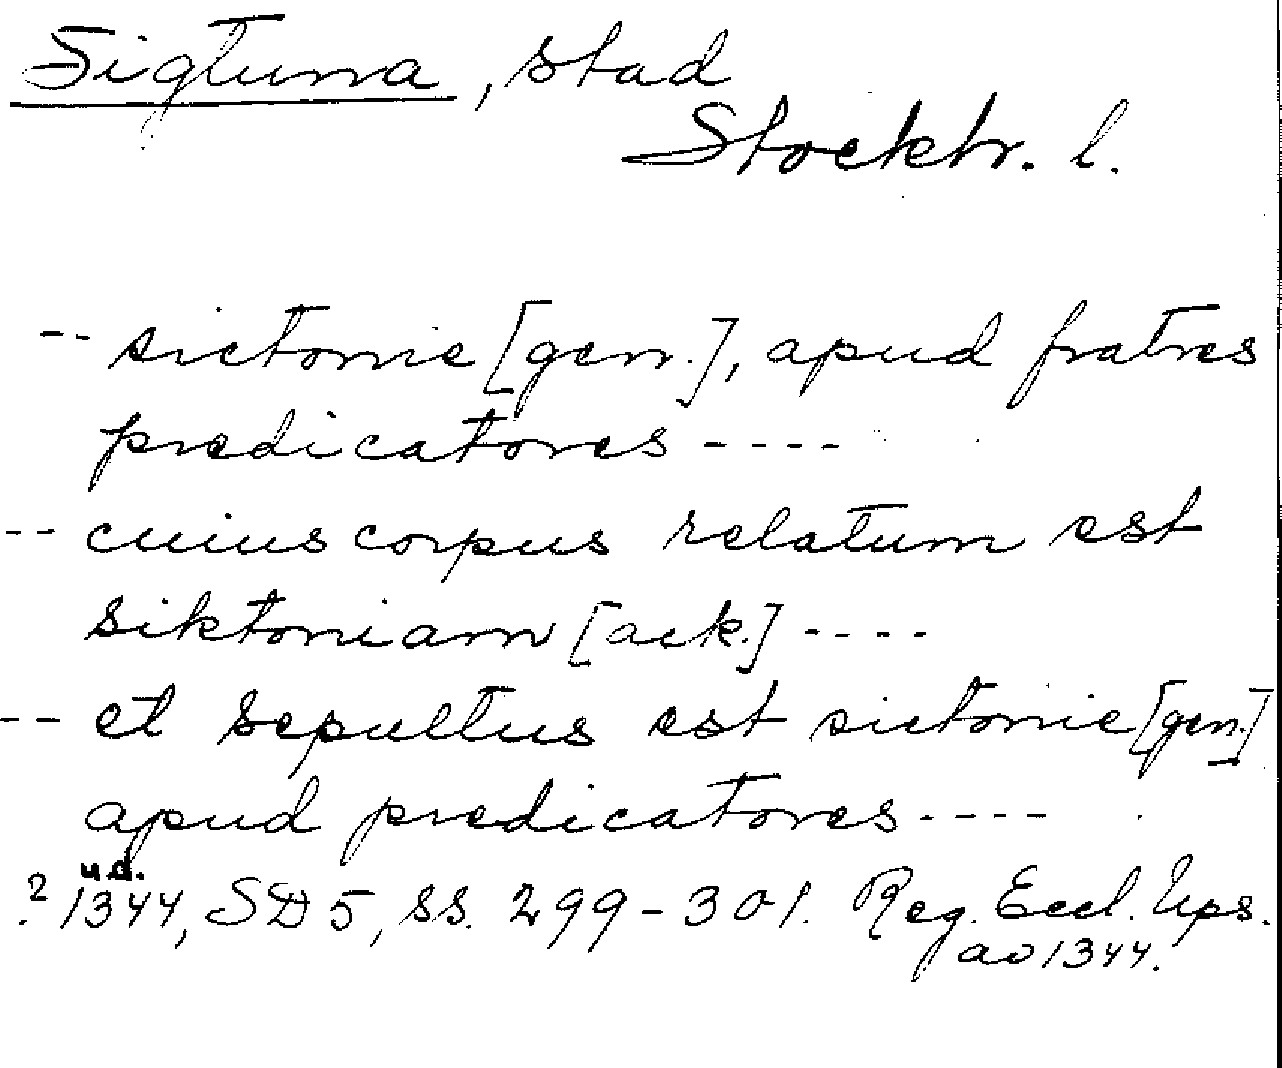 Sigtuna, stad
Stockh. l.
-- sictonie [gen.], apud fratres
predicatores ----
-- cuius corpus relatum est
siktoniam [ack.] ----
-- et sepultus est sictonie [gen.]
apud predicatores ----
u.d.
? 1344, SD 5, ss. 299-301. Reg. Eccl. Ups.
ao 1344.